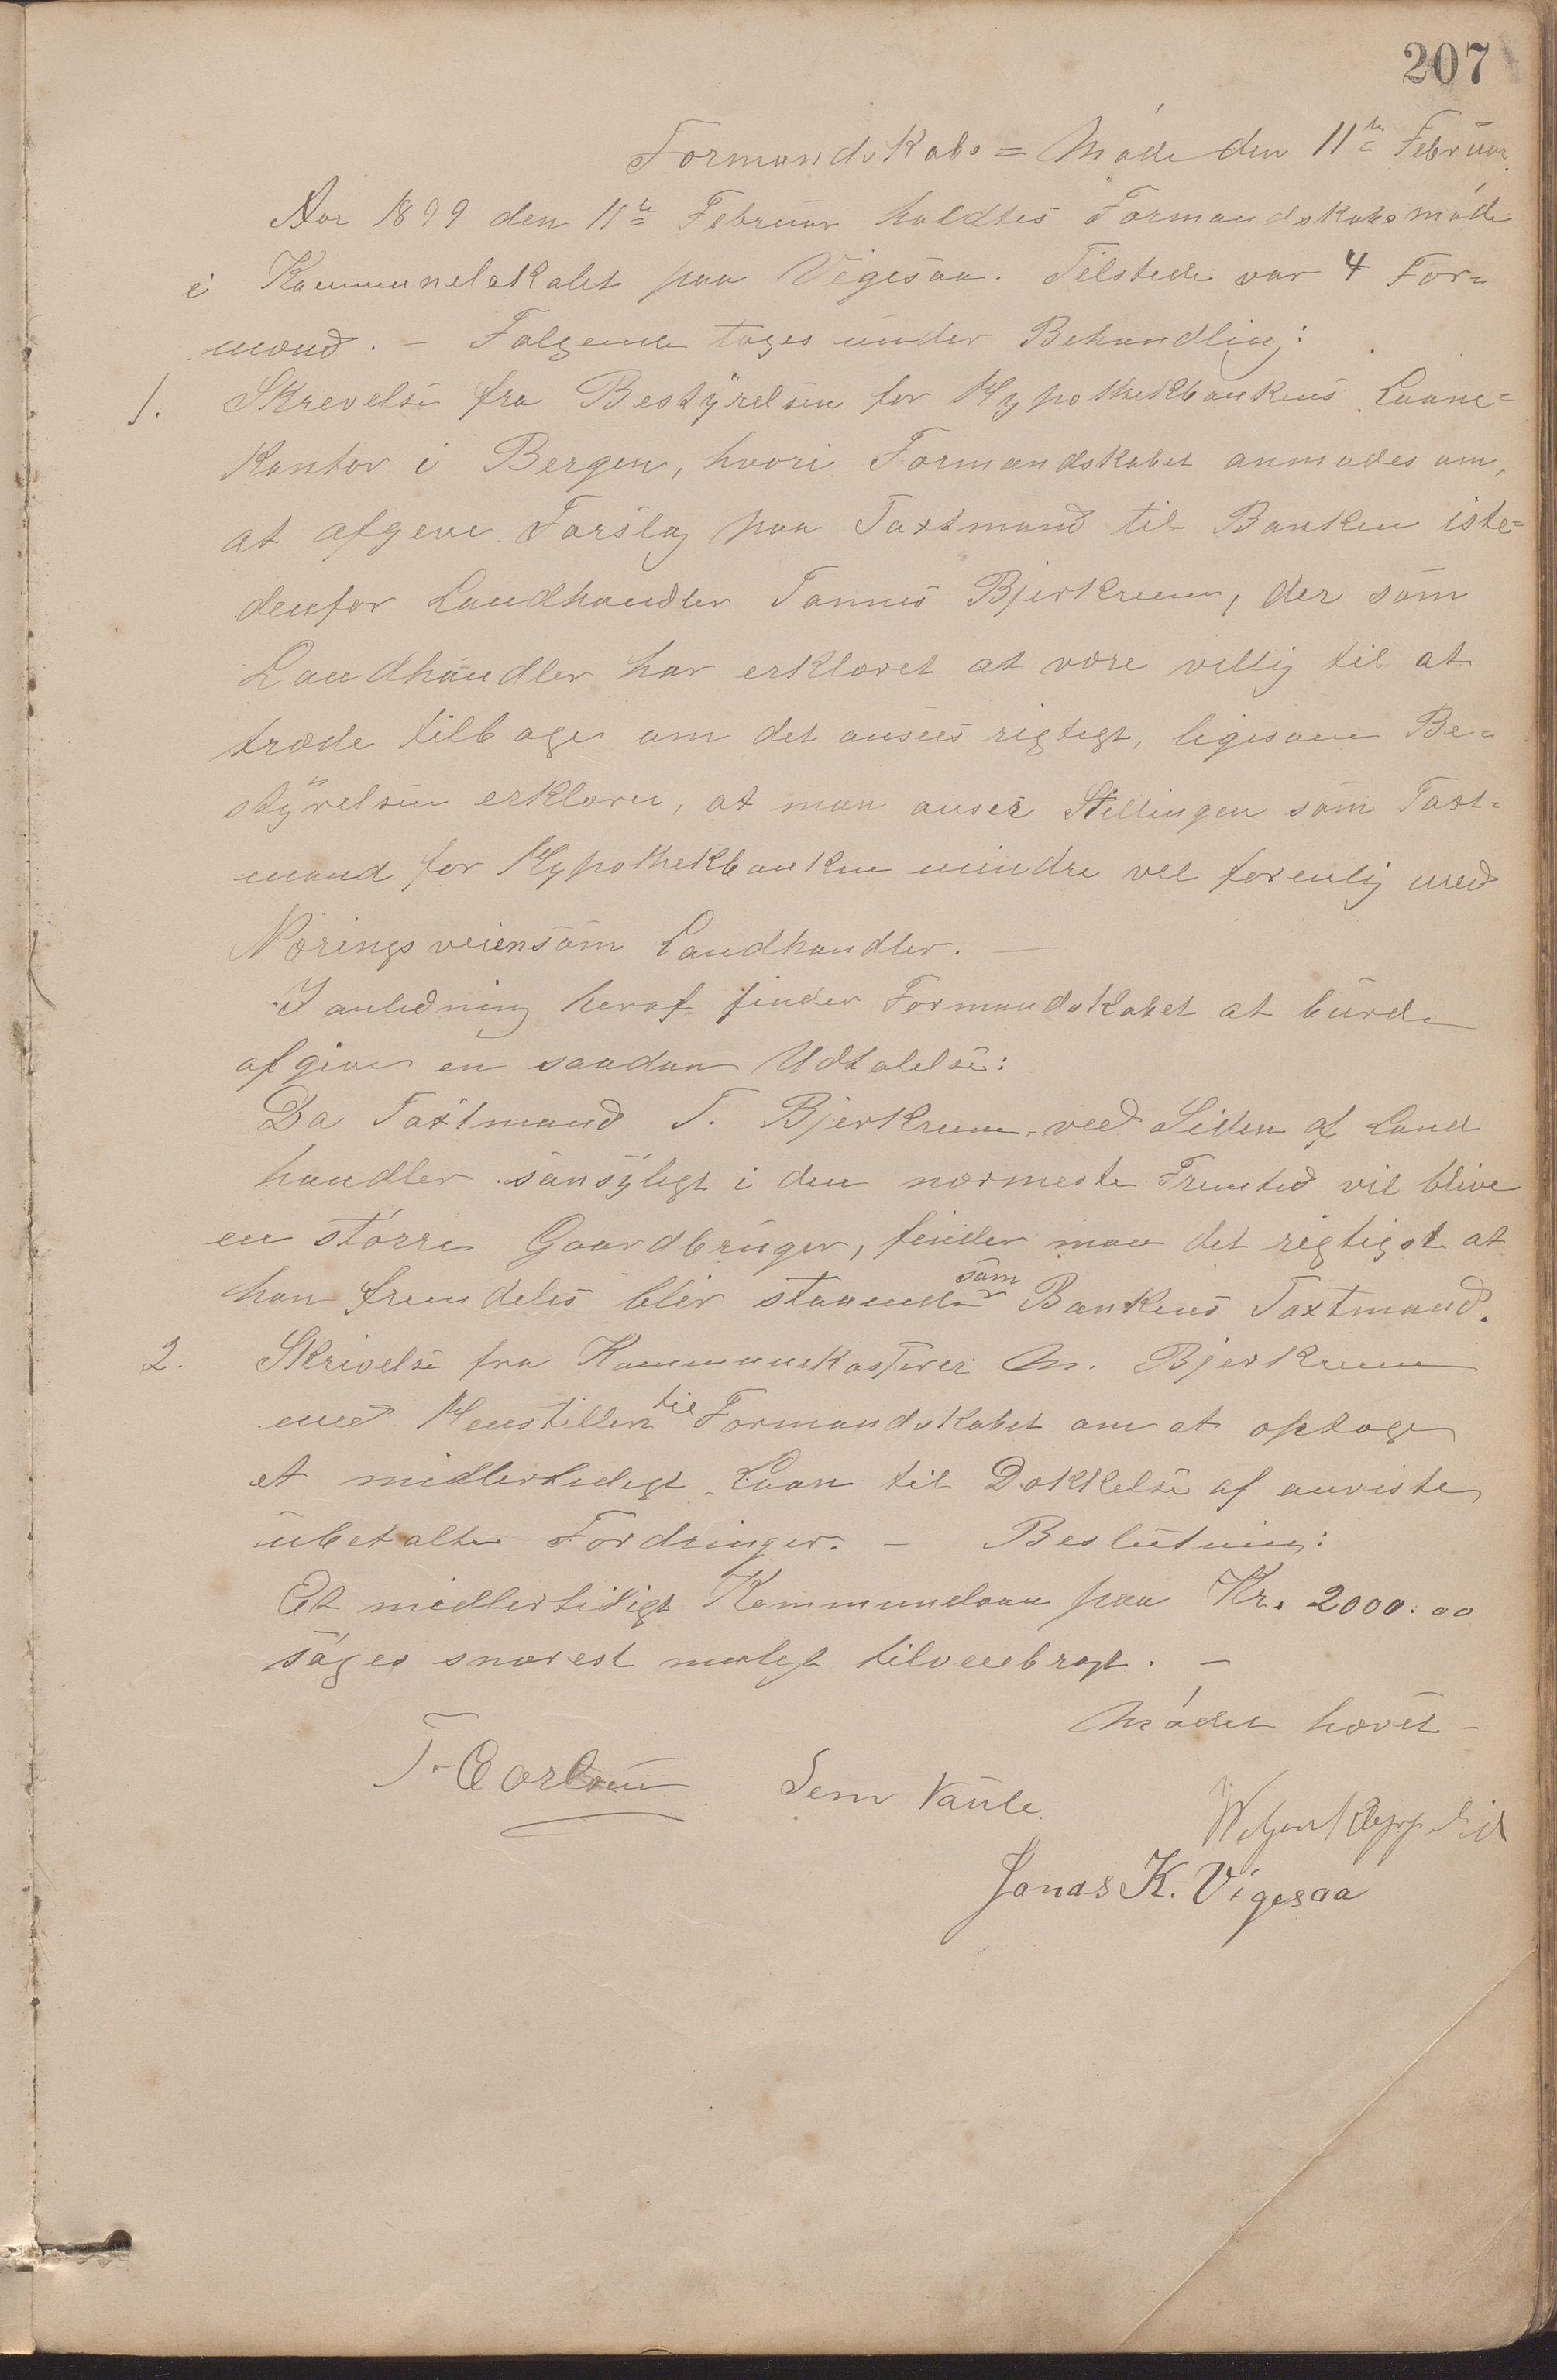 207
Formandskabs = Møde den 11te Februar.
Aar 1899 den 11te Februar holdtes Formandskabsmøde
i Kommunelokalet paa Vigesaa. Tilstede var 4 For=
mænd. – Følgende toges under Behandling:
1. Skrevelse fra Bestyrelsen for Hypothekbankens Laane=
kontor i Bergen, hvori Formandskabet anmodes om,
at afgeve Forslag paa Taxtmand til Banken iste=
denfor Landhandler Tønnes Bjerkreim, der som
Landhandler har erklæret at være villig til at
træde tilbage om det ansees rigtigt, ligesom Be=
styrelsen erklærer, at man anser Stellingen som Taxt=
mand for Hypothekbanken mindre vel forenlig med
Næringsveien som Landhandler. –
I anledning heraf finder Formandskabet at burde
afgive en saadan Udtalelse:
Da Taxtmand T. Bjerkreim, ved Siden af Land
handler sansyligt i den nærmeste Fremtid vil blive
en større Gaardbruger, finder man det rigtigst at
han fremdeles blir staaende som Bankens Taxtmand.
2. Skrivelse fra Kommunekasserer M. Bjerkreim
med Henstillen til Formandskabet om at optage
et midlertidigt Laan til Dækkelse af anviste
ubetalte Fordringer. – Beslutning:
Et midlertidigt Kommunelaan paa Kr. 2000.00
søges snarest muligt tilveiebragt. –
Mødet hævet –
Sem Vaule.
Jonas K. Vigesaa